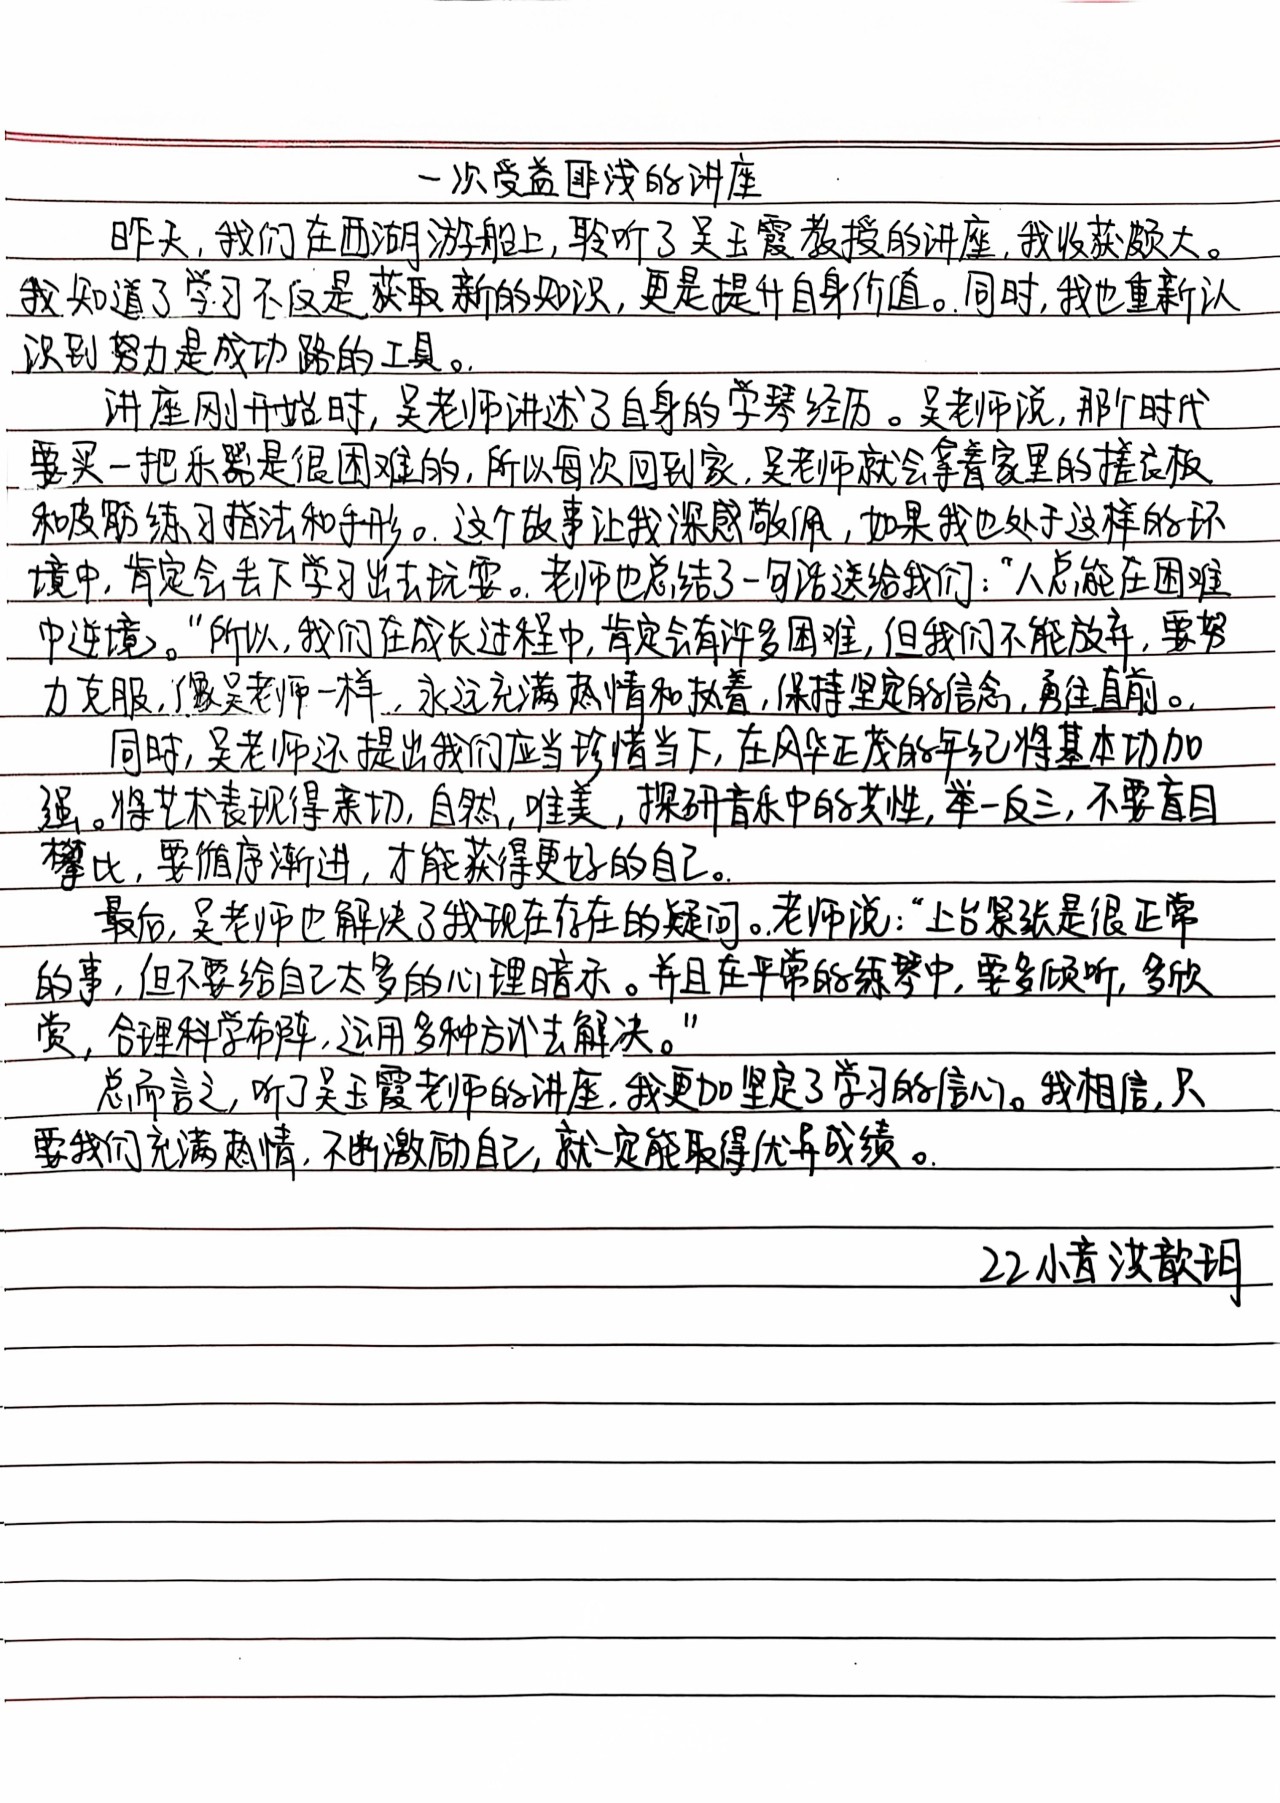 一次受益匪浅的讲座
昨天,我们在西湖游船上,聆听了吴玉霞教授的讲座,我收获颇大。
我知道了学习不仅是获取新的知识,更是提升自身价值。同时,我也重新认
识到努力是成功路的工具。
讲座刚开始时,吴老师讲述了自身的学琴经历。吴老师说,那个时代
要买一把乐器是很困难的,所以每次回到家,吴老师就会拿着家里的搓衣板
和皮筋练习指法和手形。这个故事让我深感敬佩,如果我也处于这样的环
境中,肯定会丢下学习出去玩耍。老师也总结了一句话送给我们:“人总能在困难
中逆境。”所以,我们在成长过程中,肯定会有许多困难,但我们不能放弃,要努
力克服,像吴老师一样,永远充满热情和执着,保持坚定的信念,勇往直前。
同时,吴老师还提出我们应当珍惜当下,在风华正茂的年纪将基本功加
强。将艺术表现得亲切,自然,唯美,探研音乐中的共性,举一反三,不要盲目
攀比,要循序渐进,才能获得更好的自己。
最后,吴老师也解决了我现在存在的疑问。老师说:“上台紧张是很正常
的事,但不要给自己太多的心理暗示。并且在平常的练琴中,要多倾听,多欣
赏,合理科学布阵,运用多种方式去解决。”
总而言之,听了吴玉霞老师的讲座,我更加坚定了学习的信心。我相信,只
要我们充满热情,不断激励自己,就一定能取得优异成绩。
22小音 洪歆玥